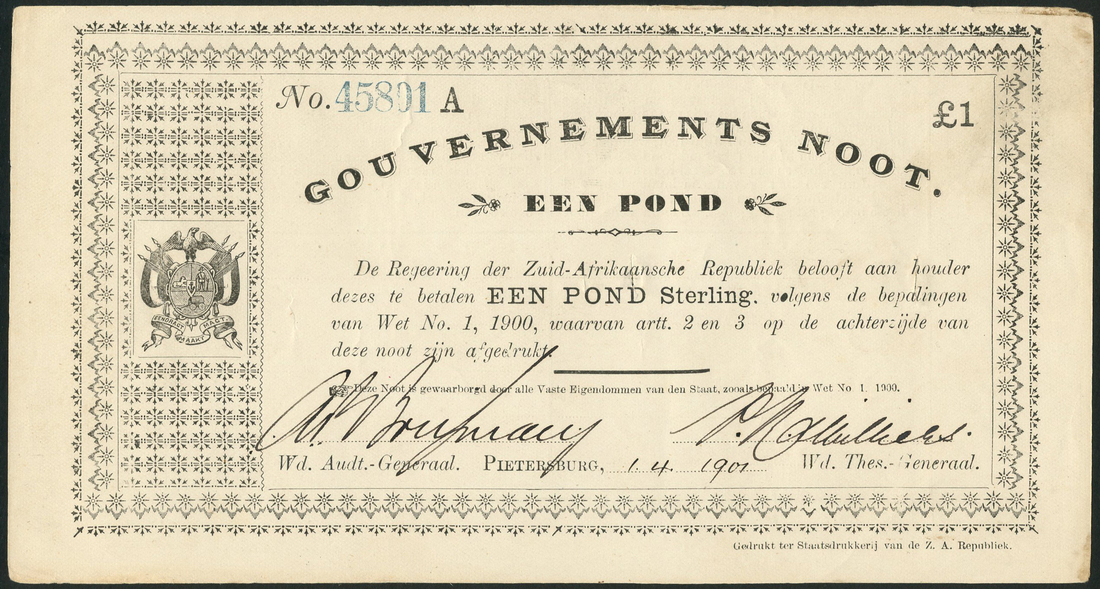 No. 45891 A
£1
GOUVERNEMENTS NOOT.
EEN POND
De Regeering der Zuid-Afrikaansche Republiek belooft aan houder
dezes te betalen EEN POND Sterling, volgens de bepalingen
van Wet No. 1, 1900, waarvan artt. 2 en 3 op de achterzijde van
deze noot zijn afgedrukt.
EENDRAGT MAAKT
Deze Noot is gewaarborgd door alle Vaste Eigendommen van den Staat, zooals bepaald in Wet No 1. 1900.
Wd. Audt.-Generaal. PIETERSBURG, 1. 4. 1901 Wd. Thes.-Generaal.
Gedrukt ter Staatsdrukkerij van de Z. A. Republiek.